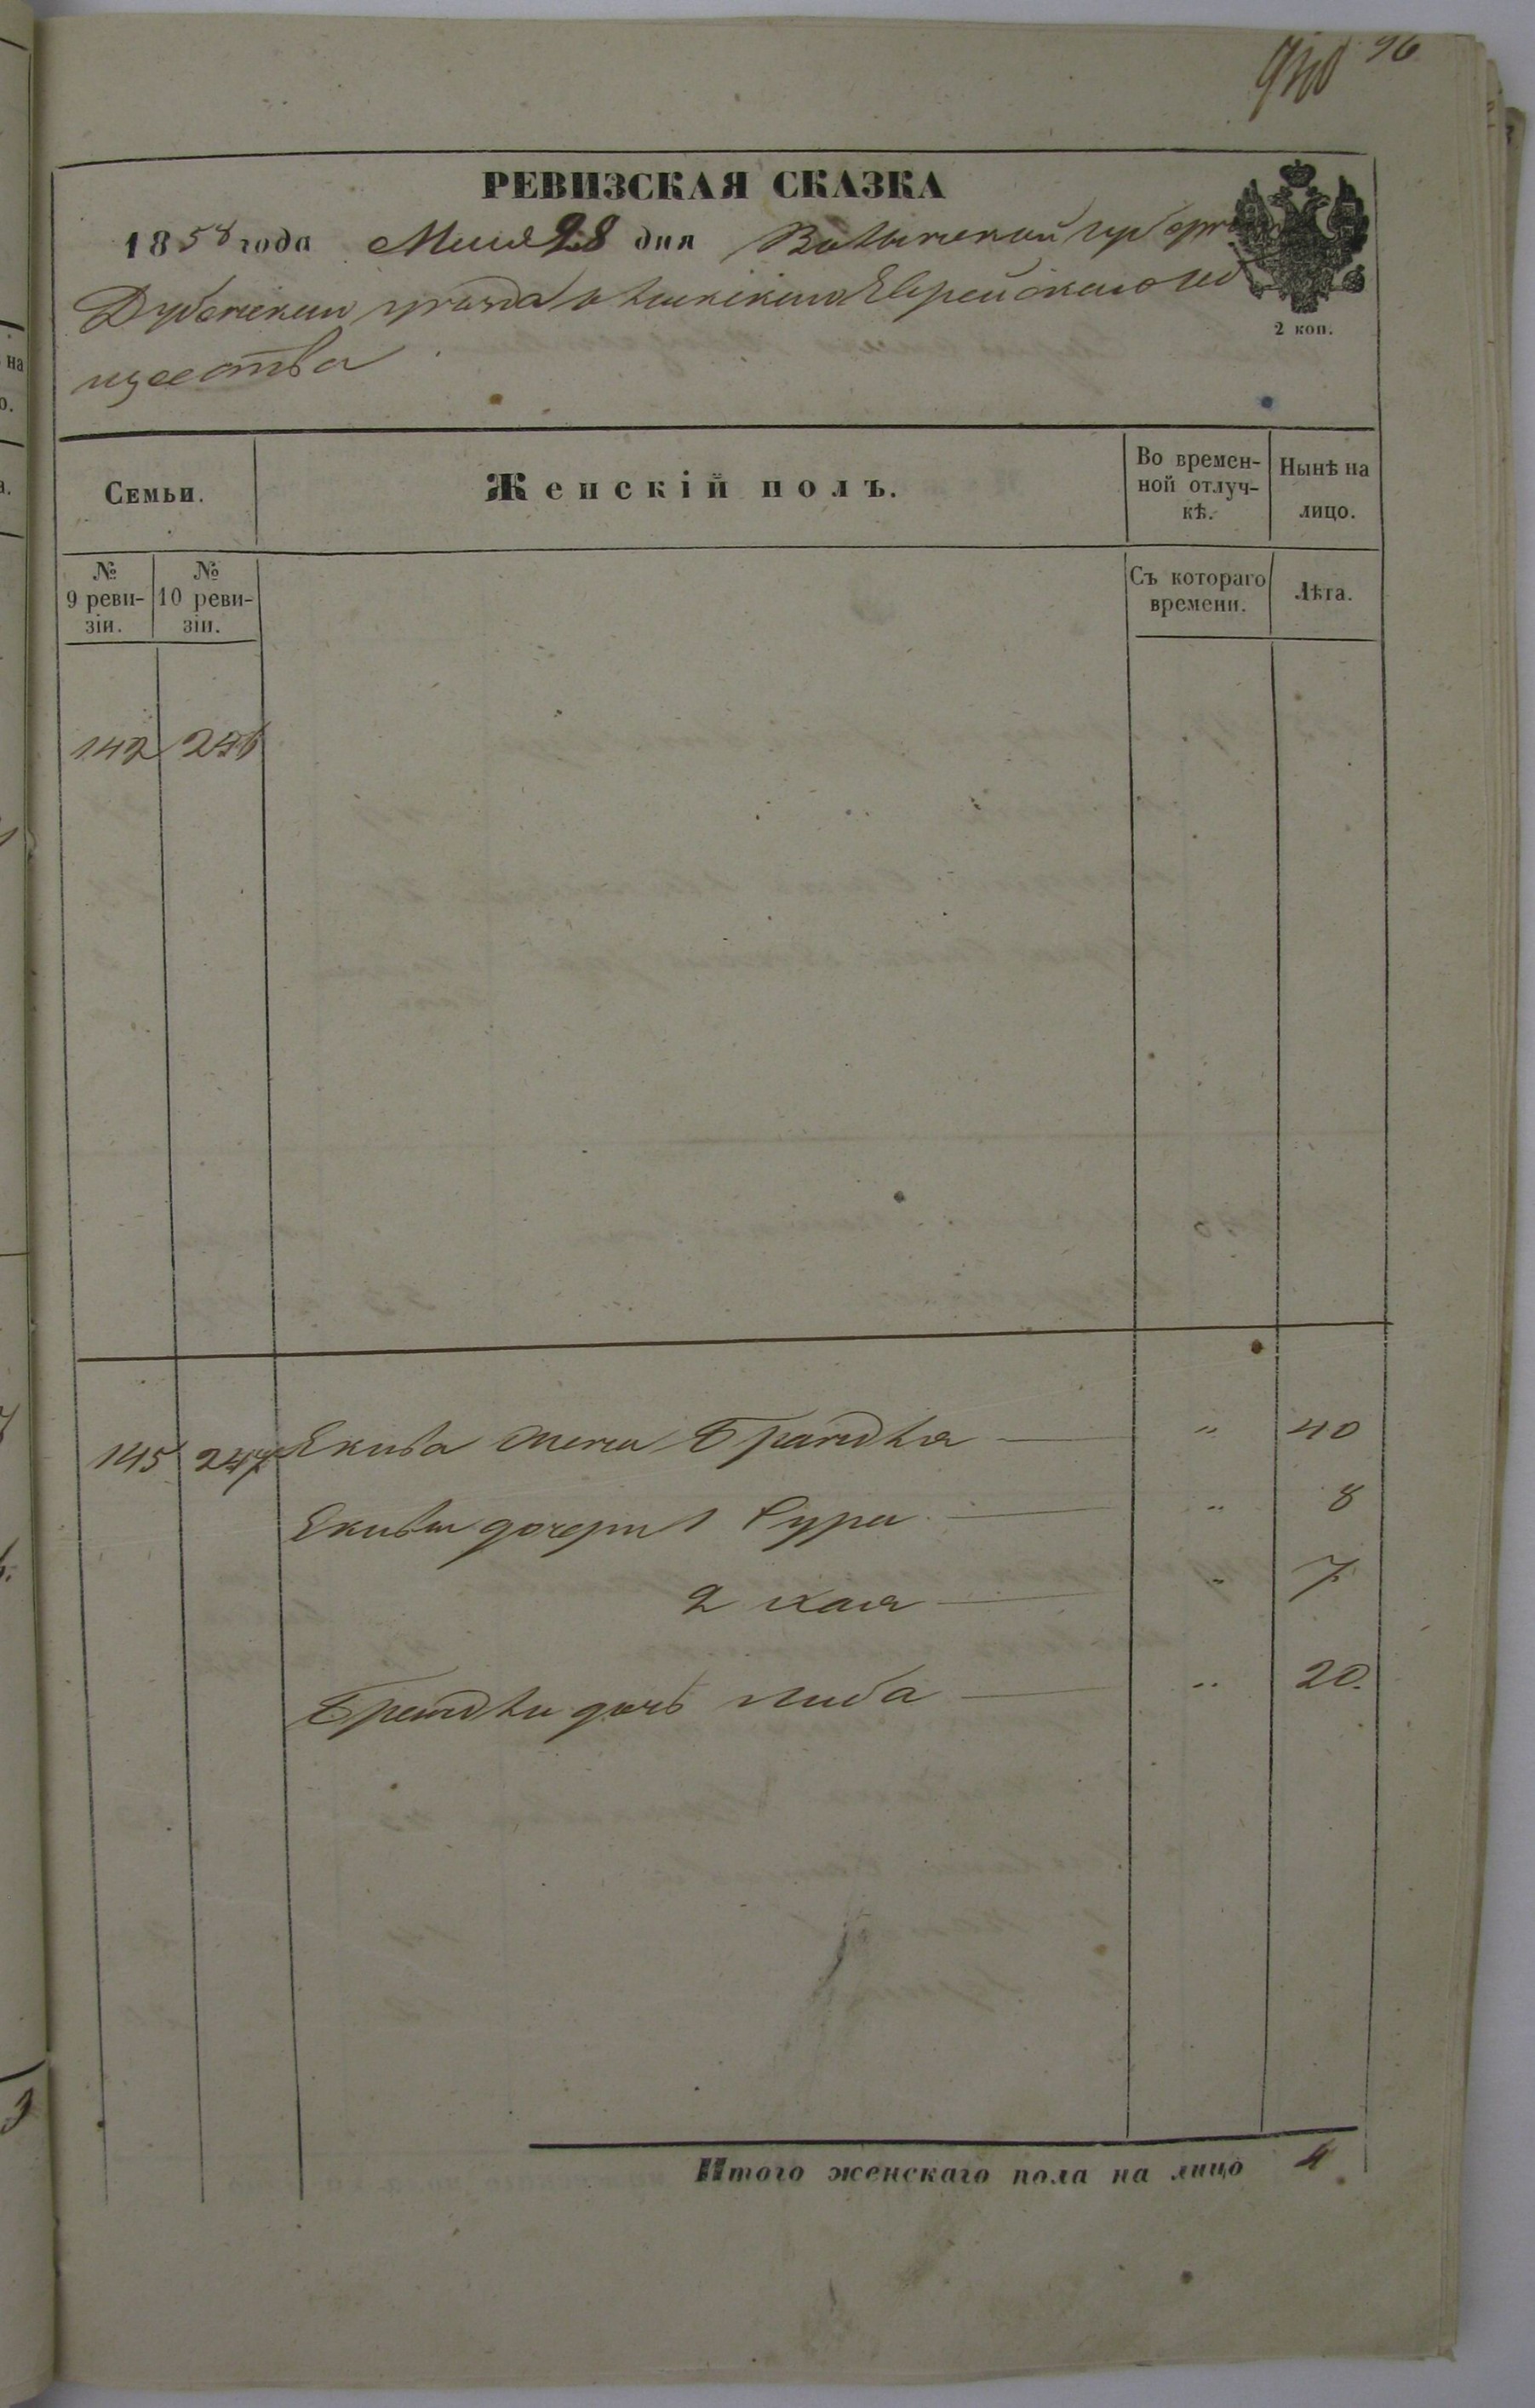 940 96
РЕВИЗСКАЯ СКАЗКА
1858 года Мая 28 дня Волынской губерніи
Дубенскаго уезда Еврейскаго об
щества
2 коп.
Семьи.
Женскій полъ.
Во времен-
ной отлуч-
кѣ.
Нынѣ на
лицо.
№
9 реви-
зіи.
№
10 реви-
зіи.
Съ котораго
времени.
Лѣта.
142 246
145 247 Екива жена Брандля — " 40
Екивы дочери 1 Сура — " 8
2 Хая — " 7
Брендли дочь Либа — " 20.
Итого женскаго пола на лицо 4